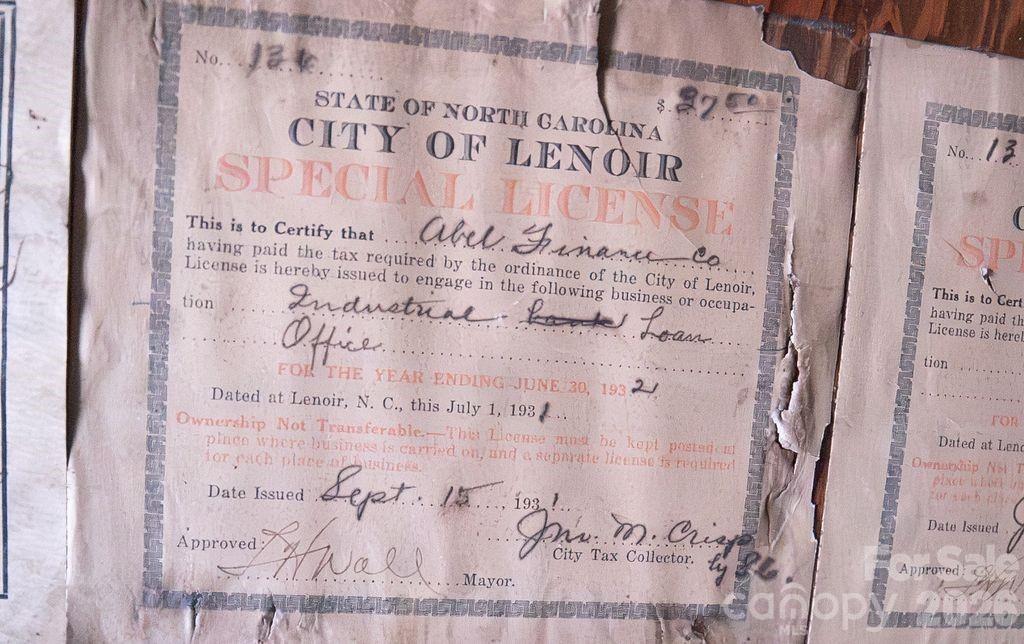 No. 136
$ 37 50
STATE OF NORTH CAROLINA
CITY OF LENOIR
SPECIAL LICENSE
This is to Certify that Abel Finance Co
having paid the tax required by the ordinance of the City of Lenoir,
License is hereby issued to engage in the following business or occupa-
tion Industrial bank Loan
Office
FOR THE YEAR ENDING JUNE 30, 1932
Dated at Lenoir, N. C., this July 1, 1931
Ownership Not Transferable.—This License must be kept posted at
place where business is carried on, and a separate license is required
for each place of business.
Date Issued Sept. 15, 1931.
Jno. M. Crisp
City Tax Collector.
by
Approved: Wall
Mayor.
No. 13
C
SPE
This is to Cert
having paid th
License is herel
tion
FOR
Dated at Leno
Ownership Not T
place
for each
Date Issued
Approved:
For Sale
canopy 2026
MLS